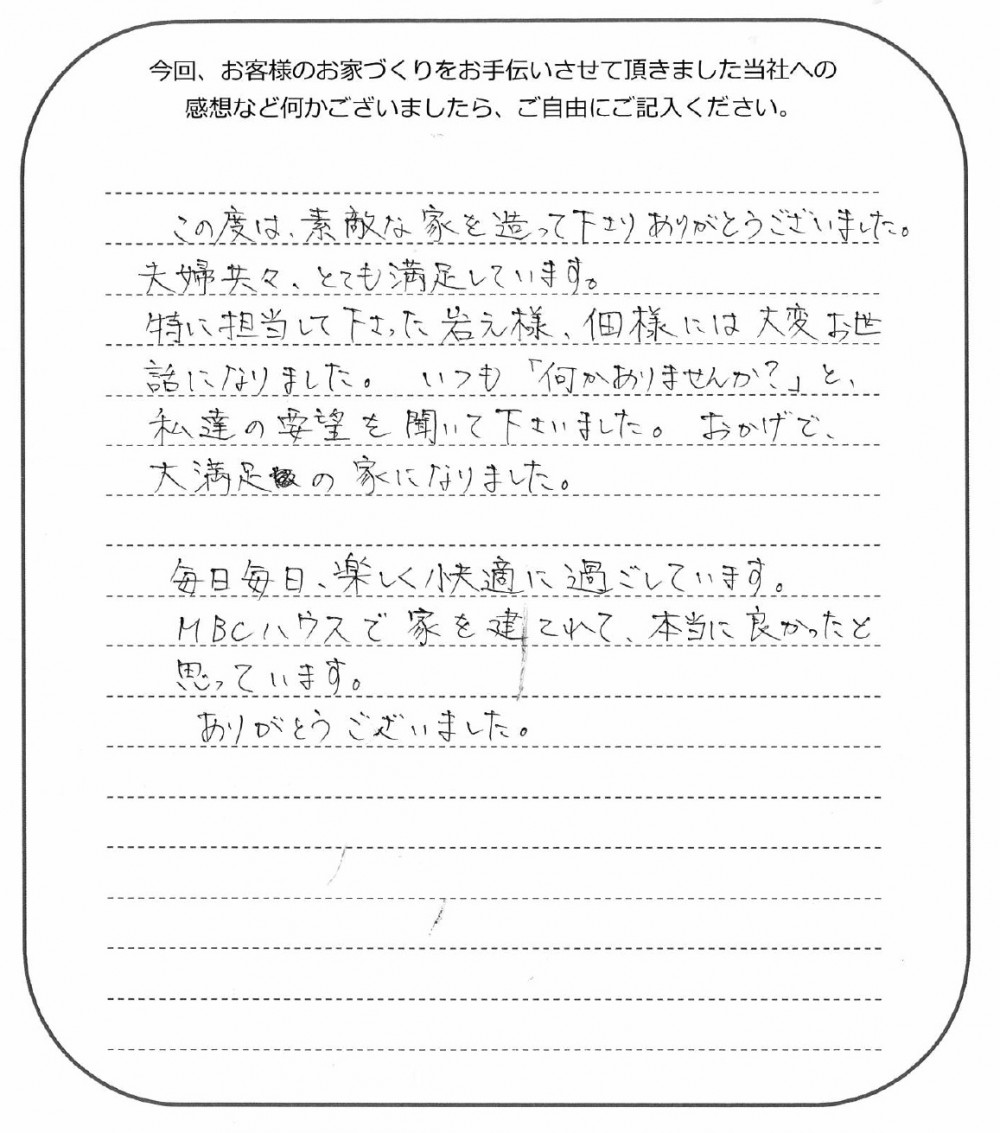 今回、お客様のお家づくりをお手伝いさせて頂きました当社への
感想など何かございましたら、ご自由にご記入ください。
この度は、素敵な家を造って下さりありがとうございました。
夫婦共々、とても満足しています。
特に担当して下さった岩元様、佃様には大変お世
話になりました。 いつも「何かありませんか?」と、
私達の要望を聞いて下さいました。 おかげで、
大満足の家になりました。
毎日毎日、楽しく快適に過ごしています。
MBCハウスで家を建てれて、本当に良かったと
思っています。
ありがとうございました。